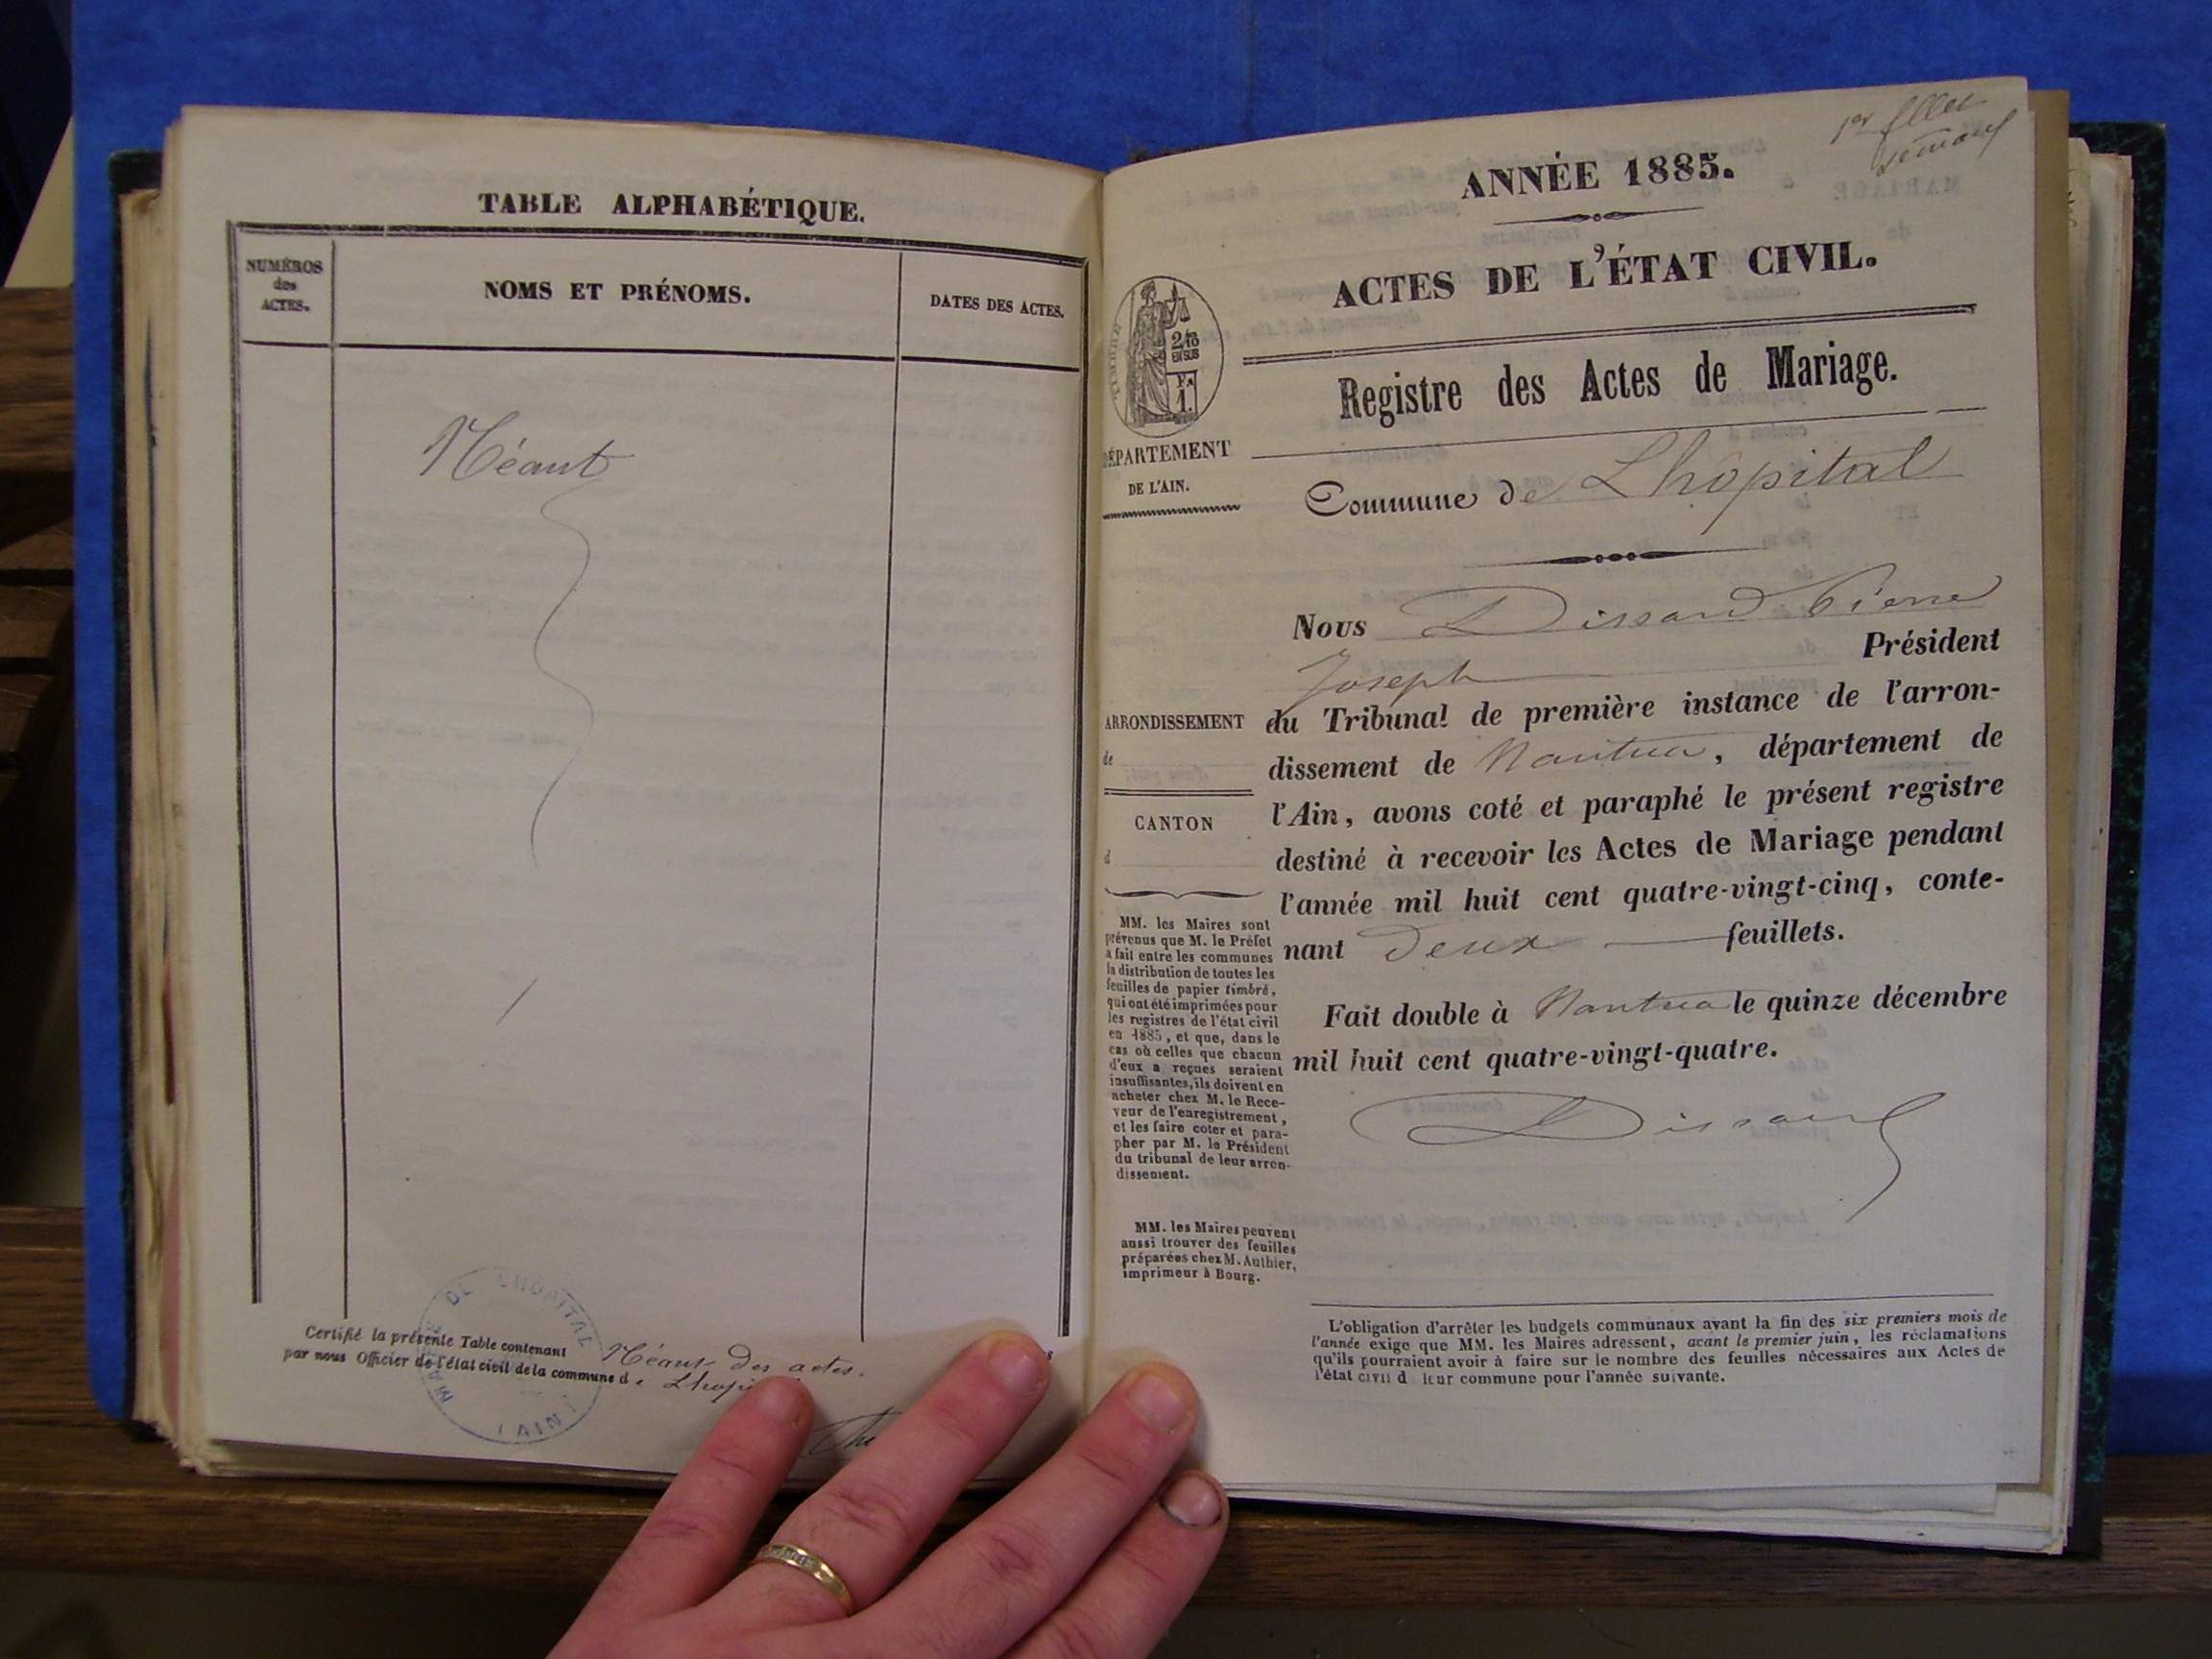 TABLE ALPHABÉTIQUE.
NUMÉROS
des
ACTES.
NOMS ET PRÉNOMS.
DATES DES ACTES.
Néant
Certifié la présente Table contenant Néant des actes.
par nous Officier de l'état civil de la commune de Lhopi
MAIRIE DE LHOPITAL
(AIN)
1er
ANNÉE 1885.
ACTES DE L'ÉTAT CIVIL.
TIMBRE
2/10
EN SUS
1
Registre des Actes de Mariage.
DÉPARTEMENT
DE L'AIN.
Commune de Lhôpital
Nous Dissard Pierre
Joseph Président
ARRONDISSEMENT
de
CANTON
d
du Tribunal de première instance de l'arron-
dissement de Nantua, département de
l'Ain, avons coté et paraphé le présent registre
destiné à recevoir les Actes de Mariage pendant
l'année mil huit cent quatre-vingt-cinq, conte-
nant deux feuillets.
Fait double à Nantua le quinze décembre
mil huit cent quatre-vingt-quatre.
Dissard
MM. les Maires sont
prévenus que M. le Préfet
a fait entre les communes
la distribution de toutes les
feuilles de papier timbré,
qui ont été imprimées pour
les registres de l'état civil
en 1885, et que, dans le
cas où celles que chacun
d'eux a reçues seraient
insuffisantes, ils doivent en
acheter chez M. le Rece-
veur de l'enregistrement,
et les faire coter et para-
pher par M. le Président
du tribunal de leur arron-
dissement.
MM. les Maires peuvent
aussi trouver des feuilles
préparées chez M. Authier,
imprimeur à Bourg.
L'obligation d'arrêter les budgets communaux avant la fin des six premiers mois de
l'année exige que MM. les Maires adressent, avant le premier juin, les réclamations
qu'ils pourraient avoir à faire sur le nombre des feuilles nécessaires aux Actes de
l'état civil d leur commune pour l'année suivante.